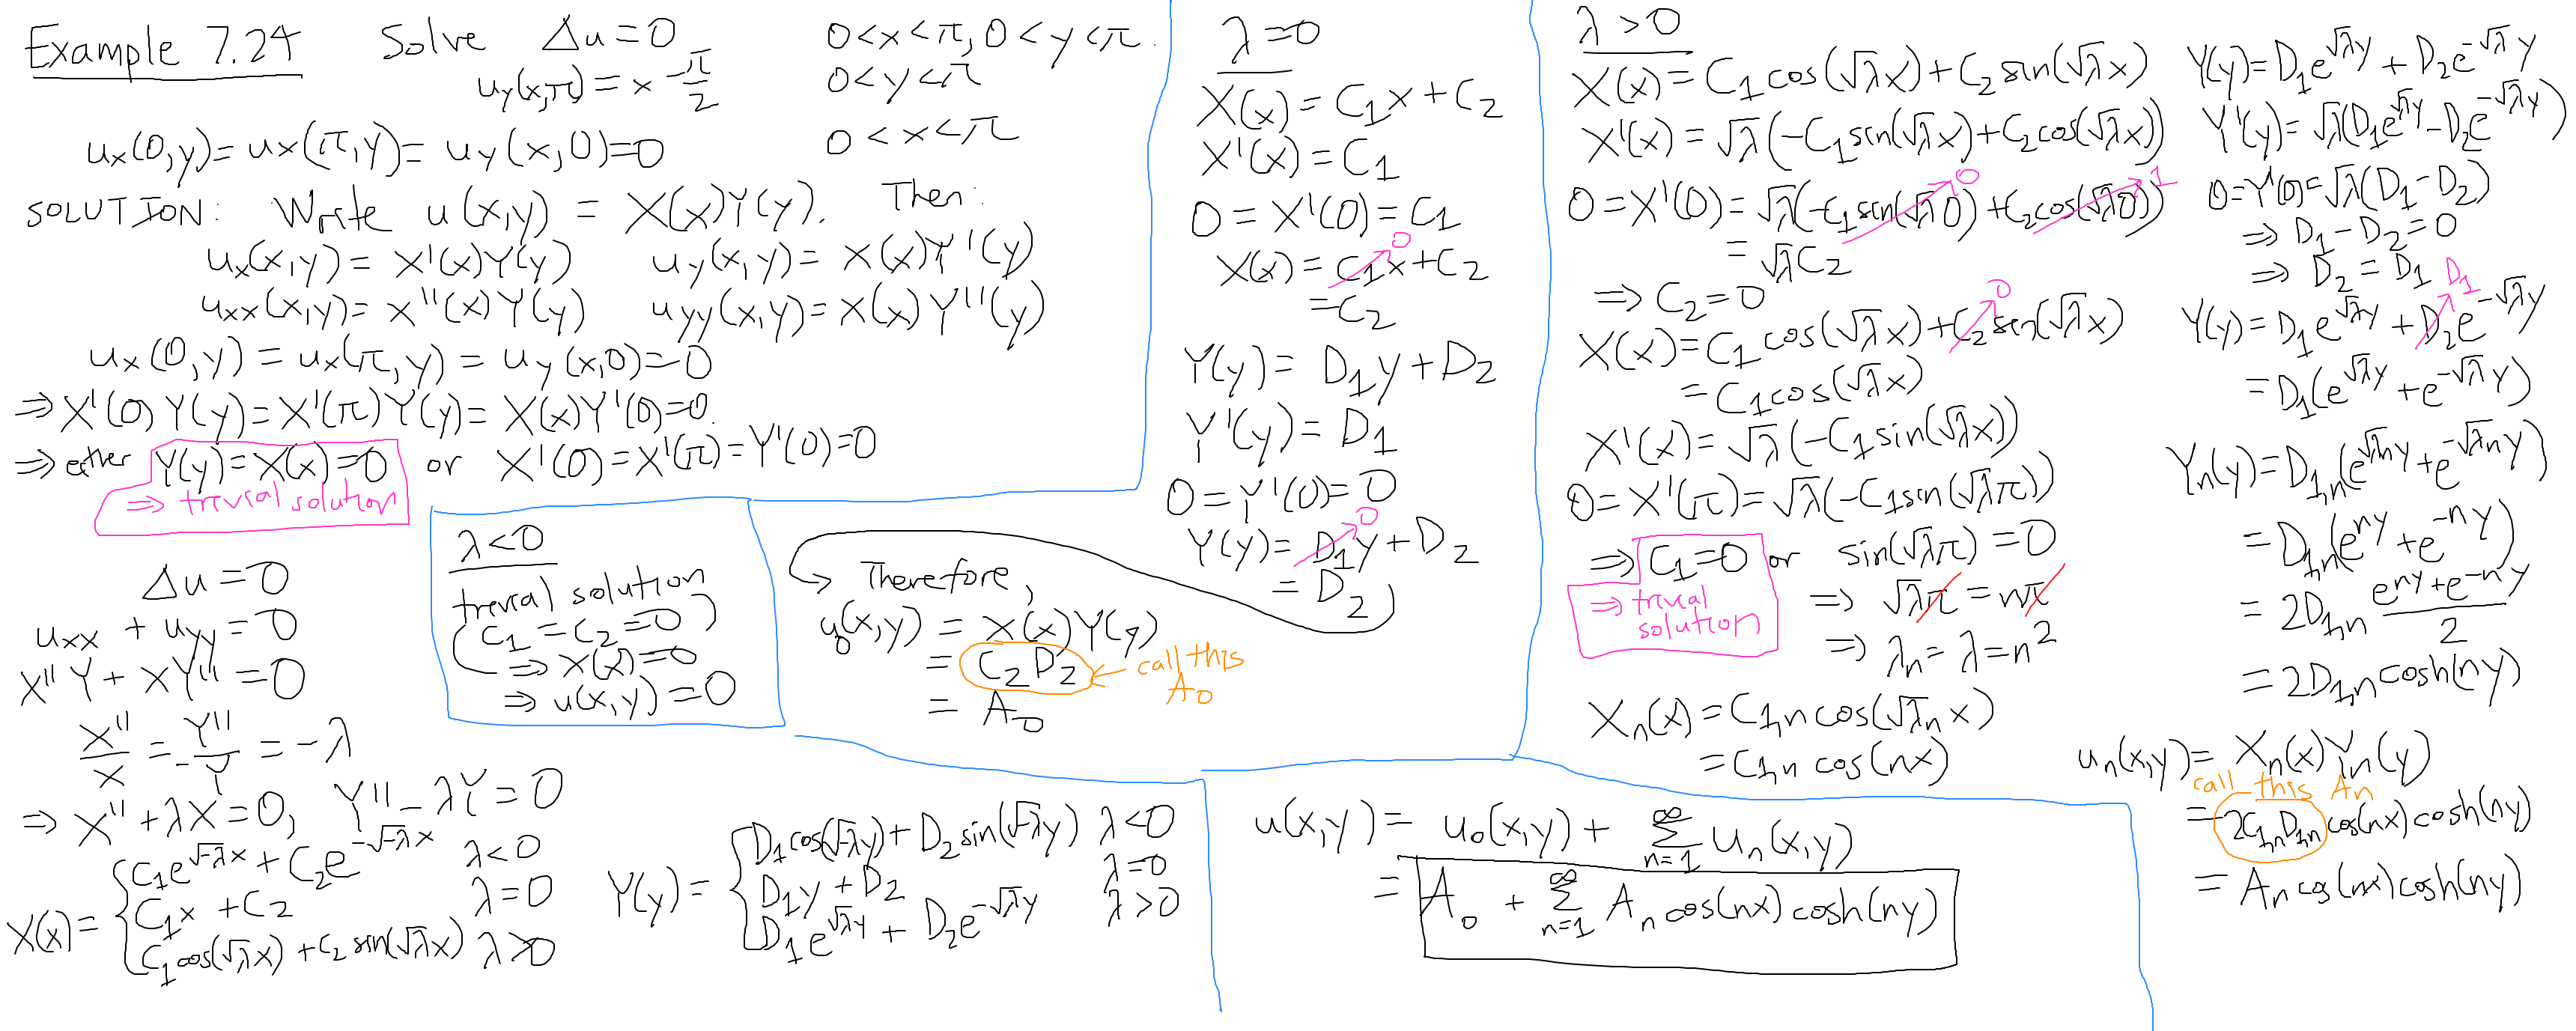 Example 7.24 Solve Δu=0 0<x<π, 0<y<π.
u_y(x,π)=x-π/2 0<y<π
u_x(0,y)=u_x(π,y)=u_y(x,0)=0 0<x<π
SOLUTION: Write u(x,y) = X(x)Y(y). Then:
u_x(x,y)=X'(x)Y(y) u_y(x,y)=X(x)Y'(y)
u_xx(x,y)=X''(x)Y(y) u_yy(x,y)=X(x)Y''(y)
u_x(0,y)=u_x(π,y)=u_y(x,0)=0
⇒X'(0)Y(y)=X'(π)Y(y)=X(x)Y'(0)=0.
⇒either Y(y)=X(x)=0 or X'(0)=X'(π)=Y'(0)=0
⇒ trevial solution
Δu=0
u_xx + u_yy=0
X''Y+XY''=0
X''/X=-Y''/Y=-λ
⇒X''+λX=0, Y''-λY=0
X(x)={C_1e^{√-λx}+C_2e^{-√-λx} λ<0
C_1x+C_2 λ=0
C_1cos(√λx)+C_2sin(√λx) λ>0
λ<0
trevial solution
(C_1=C_2=0)
⇒X(x)=0
⇒u(x,y)=0
Y(y)={D_1cos(√-λy)+D_2sin(√-λy) λ<0
D_1y+D_2 λ=0
D_1e^{√λy}+D_2e^{-√λy} λ>0
λ=0
X(x)=C_1x+C_2
X'(x)=C_1
0=X'(0)=C_1
X(x)=C_1x+C_2 0
=C_2
Y(y)=D_1y+D_2
Y'(y)=D_1
0=Y'(0)=0
Y(y)=D_1y+D_2 0
=D_2
Therefore,
u_0(x,y)=X(x)Y(y)
=C_2D_2 call this A_0
=A_0
λ>0
X(x)=C_1cos(√λx)+C_2sin(√λx)
X'(x)=√λ(-C_1sin(√λx)+C_2cos(√λx))
0=X'(0)=√λ(-C_1sin(√λ0)+C_2cos(√λ0)) 0 1
=√λC_2
⇒C_2=0
X(x)=C_1cos(√λx)+C_2sin(√λx) 0
=C_1cos(√λx)
X'(x)=√λ(-C_1sin(√λx))
0=X'(π)=√λ(-C_1sin(√λπ))
⇒ C_1=0 or sin(√λπ)=0
⇒ trevial solution
⇒ √λπ=nπ
⇒ λ_n=λ=n^2
X_n(x)=C_{1,n}cos(√λ_n x)
=C_{1,n}cos(nx)
Y(y)=D_1e^{√λy}+D_2e^{-√λy}
Y'(y)=√λ(D_1e^{√λy}-D_2e^{-√λy})
0=Y'(0)=√λ(D_1-D_2)
⇒D_1-D_2=0
⇒D_2=D_1
Y(y)=D_1e^{√λy}+D_2e^{-√λy} D_1
=D_1(e^{√λy}+e^{-√λy})
Y_n(y)=D_{1,n}(e^{√λ_n y}+e^{-√λ_n y})
=D_{1,n}(e^{ny}+e^{-ny})
=2D_{1,n} (e^{ny}+e^{-ny})/2
=2D_{1,n}cosh(ny)
u_n(x,y)=X_n(x)Y_n(y)
call this A_n
=2C_{1,n}D_{1,n}cos(nx)cosh(ny)
=A_n cos(nx)cosh(ny)
u(x,y)=u_0(x,y)+∑_{n=1}^∞ u_n(x,y)
=A_0+∑_{n=1}^∞ A_n cos(nx)cosh(ny)